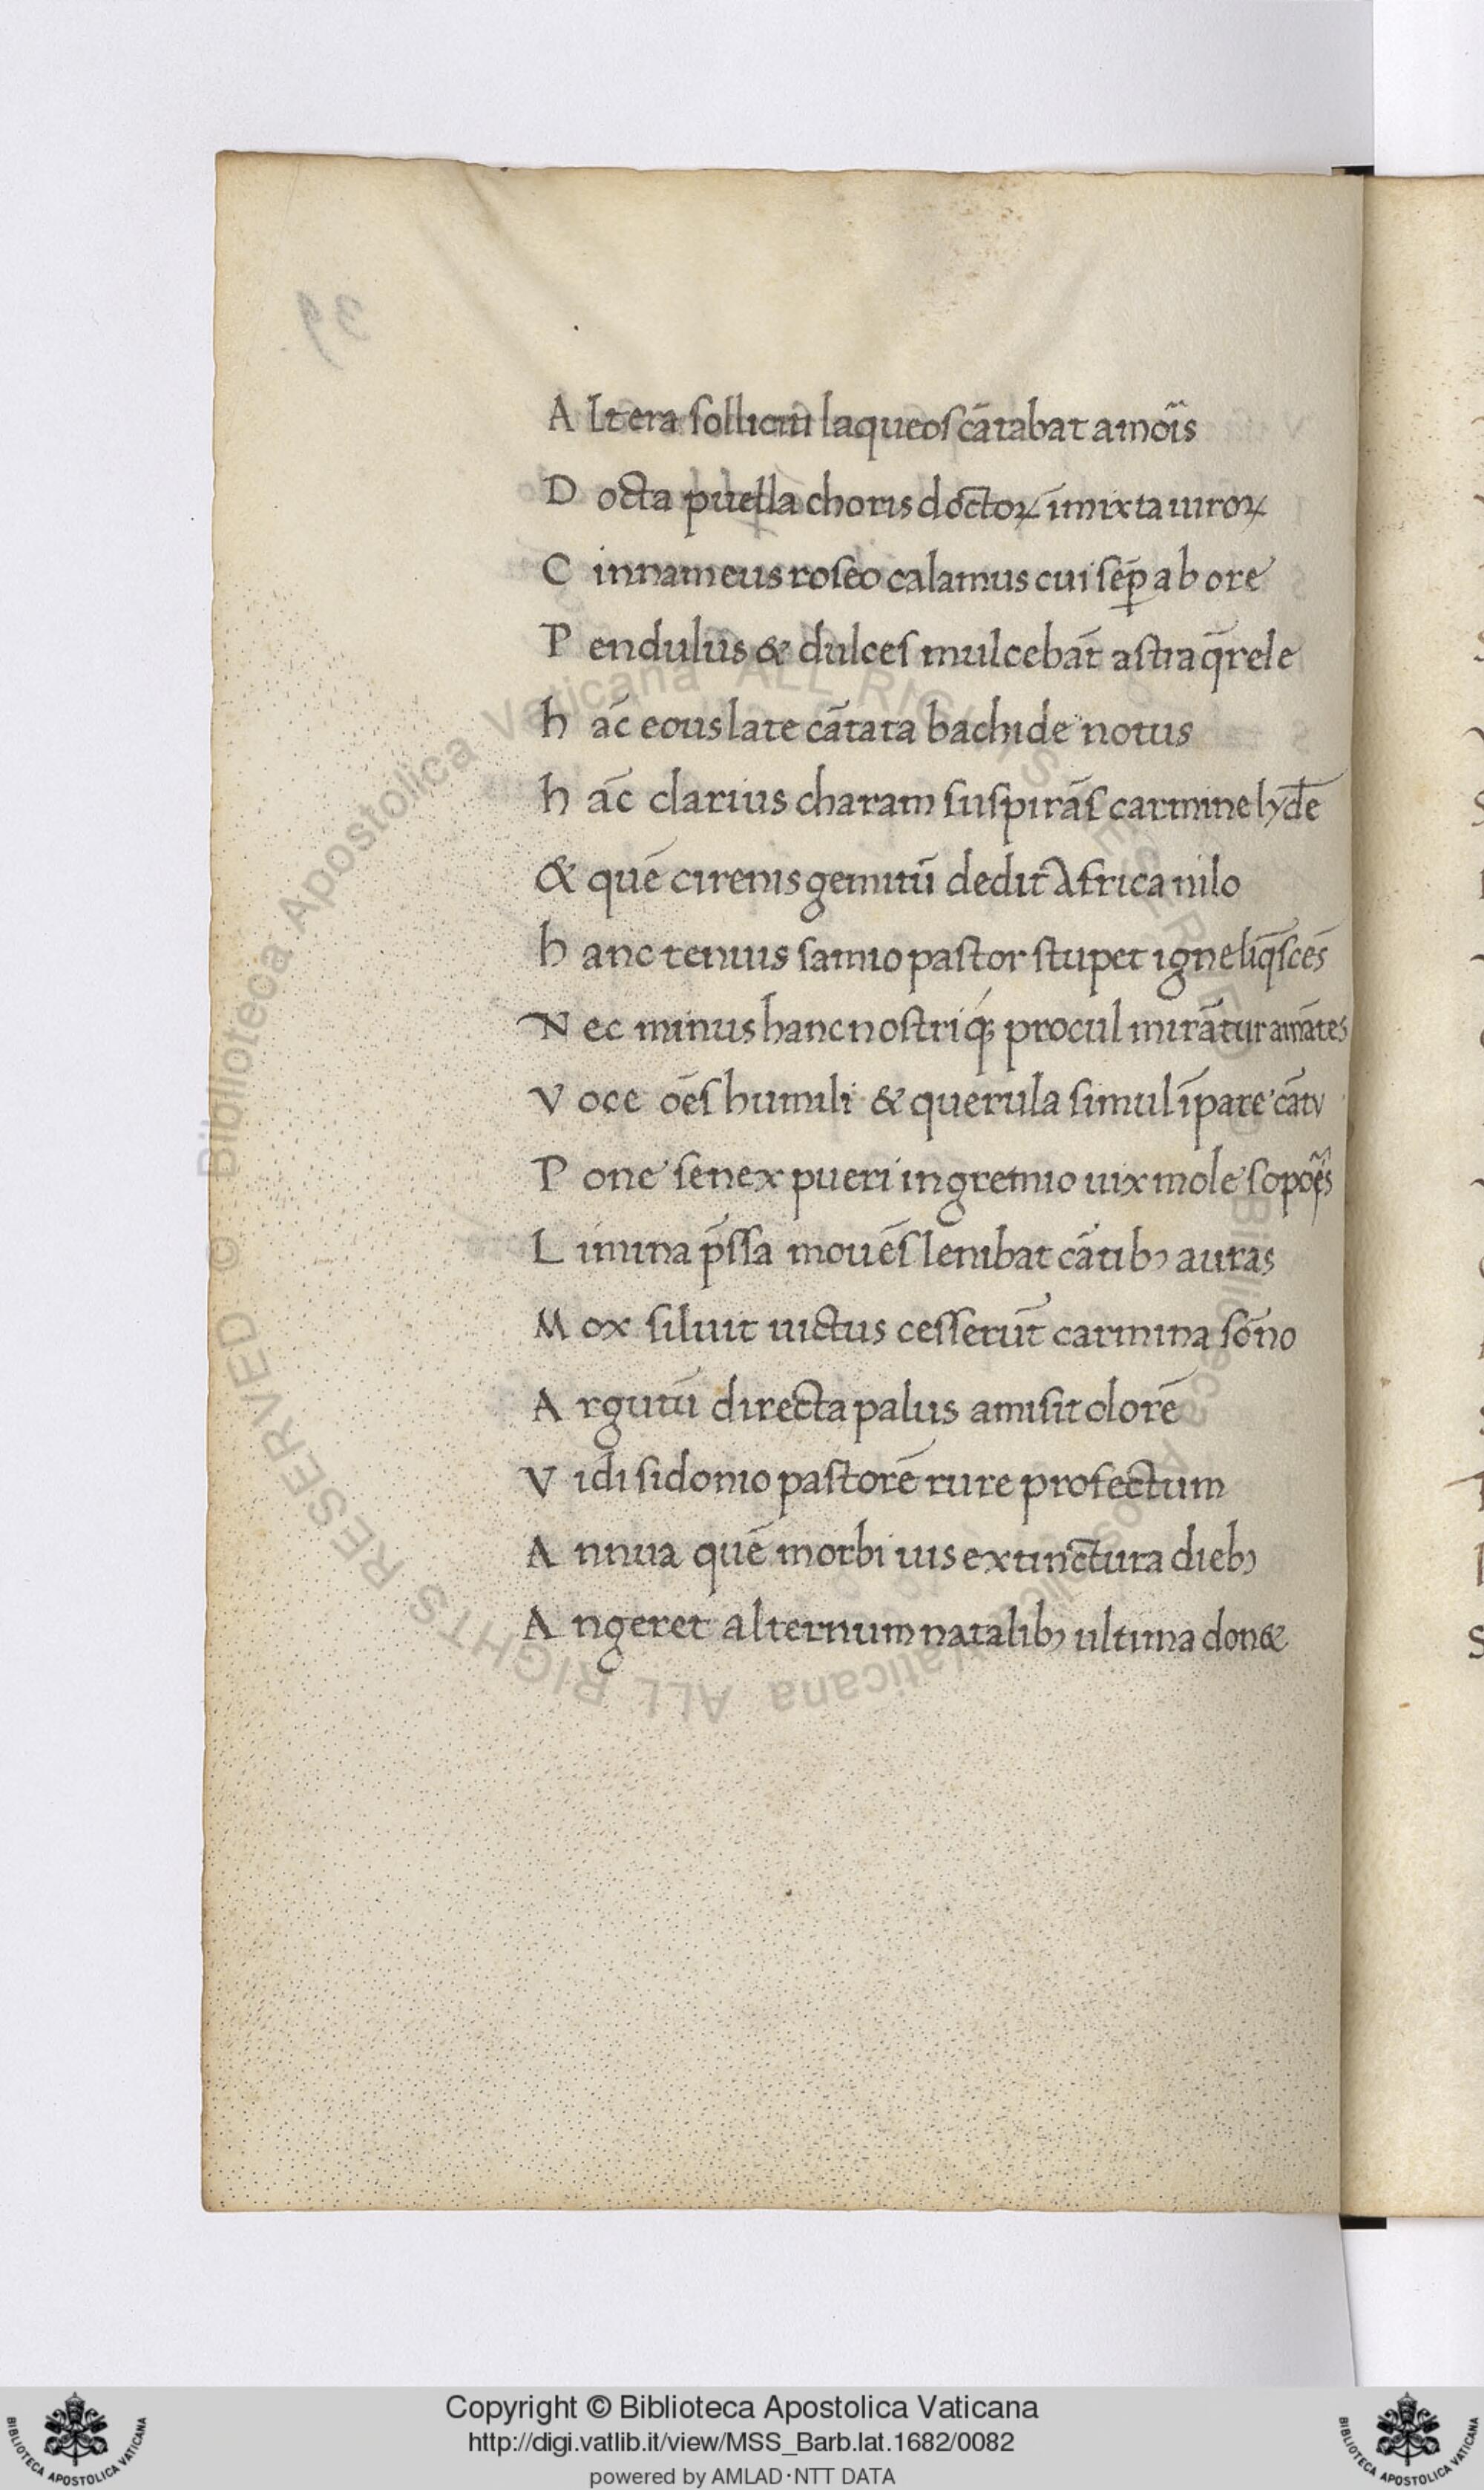 39
A ltera sollicitū laqueos cātabat amoı̄s
D octa puella choris doctoꝝ īmixta uiroꝝ
C innameus roseo calamus cui sēꝑ ab ore
P endulus & dulces mulcebāt astra q̄rele
h ac̄ eous late cātata bachide notus
h ac̄ clarius charam suspirās carmine lyde
& quē cirenis gemitū dedit Africa nilo
h anc tenuis samio pastor stupet igne liq̄scēs
N ec minus hanc nostriq; procul mirātur amātes
V oce oēs humili & querula simul īpare cātu
P one senex pueri in gremio uix mole sopoēs
L imina p̄ssa mouēs lenibat cātibꝫ auras
M ox siluit uictus cesserūt carmina sōno
A rgutū directa palus amisit olorē
V idi sidonio pastorē rure profectum
A nnua quē morbi uis extinctura diebꝫ
A ngeret alternum natalibꝫ ultima don&
© Biblioteca Apostolica Vaticana ALL RIGHTS RESERVED
© Biblioteca Apostolica Vaticana ALL RIGHTS RESERVED
Copyright © Biblioteca Apostolica Vaticana
http://digi.vatlib.it/view/MSS_Barb.lat.1682/0082
powered by AMLAD·NTT DATA
BIBLIOTECA APOSTOLICA VATICANA
BIBLIOTECA APOSTOLICA VATICANA